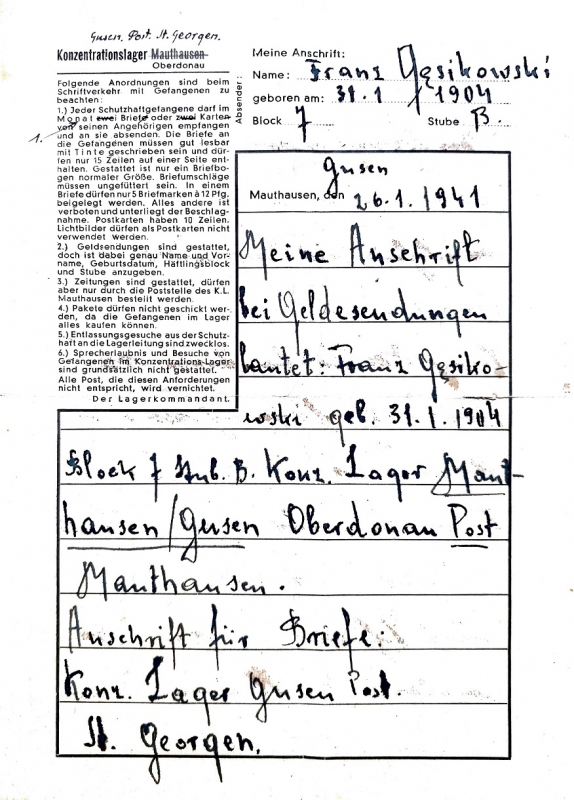 Gusen. Post. St. Georgen.
Konzentrationslager Mauthausen
Oberdonau
Folgende Anordnungen sind beim
Schriftverkehr mit Gefangenen zu
beachten:
1.) Jeder Schutzhaftgefangene darf im
Monat zwei Briefe oder zwei Karten
von seinen Angehörigen empfangen
und an sie absenden. Die Briefe an
die Gefangenen müssen gut lesbar
mit Tinte geschrieben sein und dür-
fen nur 15 Zeilen auf einer Seite ent-
halten. Gestattet ist nur ein Briefbo-
gen normaler Größe. Briefumschläge
müssen ungefüttert sein. In einem
Briefe dürfen nur 5 Briefmarken à 12 Pfg.
beigelegt werden. Alles andere ist
verboten und unterliegt der Beschlag-
nahme. Postkarten haben 10 Zeilen.
Lichtbilder dürfen als Postkarten nicht
verwendet werden.
2.) Geldsendungen sind gestattet,
doch ist dabei genau Name und Vor-
name, Geburtsdatum, Häftlingsblock
und Stube anzugeben.
3.) Zeitungen sind gestattet, dürfen
aber nur durch die Poststelle des K.L.
Mauthausen bestellt werden.
4.) Pakete dürfen nicht geschickt wer-
den, da die Gefangenen im Lager
alles kaufen können.
5.) Entlassungsgesuche aus der Schutz-
haft an die Lagerleitung sind zwecklos.
6.) Sprecherlaubnis und Besuche von
Gefangenen im Konzentrations-Lager
sind grundsätzlich nicht gestattet.
Alle Post, die diesen Anforderungen
nicht entspricht, wird vernichtet.
Der Lagerkommandant.
1.
Absender:
Meine Anschrift:
Name: Franz Gęsikowski
geboren am: 31.1 1904
Block 7 Stube B.
Gusen
Mauthausen, den 26.1.1941
Meine Anschrift
bei Geldesendungen
lautet: Franz Gęsiko-
wski geb. 31.1.1904
Block 7 Stub. B. Konz. Lager Maut-
hausen/Gusen Oberdonau Post
Mauthausen.
Anschrift für Briefe:
Konz. Lager Gusen Post.
St. Georgen.